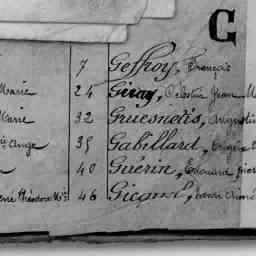 G
7 Geffroy, François
Marie 24 Giray, Célestin Jean M
Marie 32 Gruesnetis, Augustin
Ange 35 Gabillard, Eugène
40 Guérin, Edouard
Théodore 46 Gicquel,